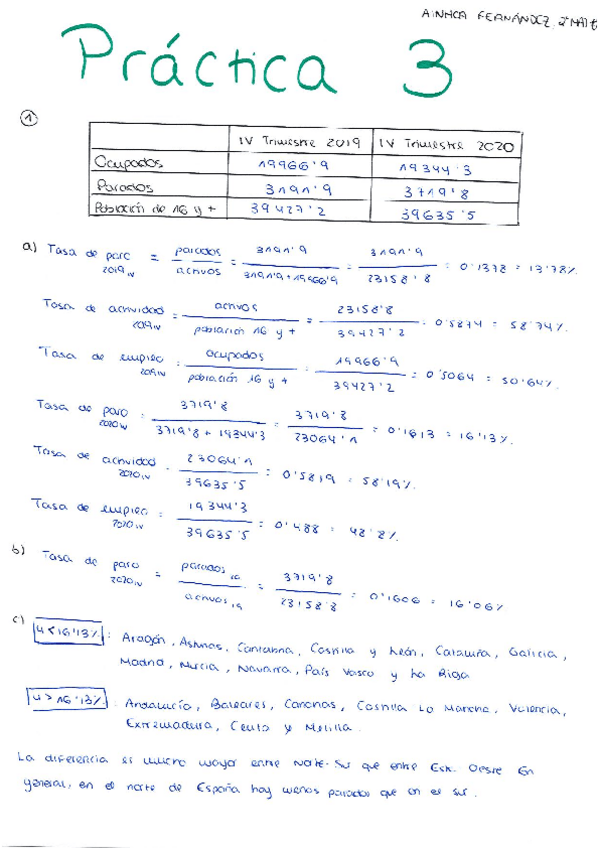 AINHOA FERNÁNDEZ, 2º
Práctica 3
1
IV Trimestre 2019 IV Trimestre 2020
Ocupados 19966'9 19344'3
Parados 3191'9 3719'8
Población de 16 y + 39427'2 39635'5
a) Tasa de paro 2019 IV = parados / activos = 3191'9 / 3191'9 + 19966'9 = 3191'9 / 23158'8 = 0'1378 = 13'78%
Tasa de actividad 2019 IV = activos / población 16 y + = 23158'8 / 39427'2 = 0'5874 = 58'74%.
Tasa de empleo 2019 IV = ocupados / población 16 y + = 19966'9 / 39427'2 = 0'5064 = 50'64%.
Tasa de paro 2020 IV = 3719'8 / 3719'8 + 19344'3 = 3719'8 / 23064'1 = 0'1613 = 16'13%.
Tasa de actividad 2020 IV = 23064'1 / 39635'5 = 0'5819 = 58'19%.
Tasa de empleo 2020 IV = 19344'3 / 39635'5 = 0'488 = 48'8%.
b) Tasa de paro 2020 IV = parados / activos 19 = 3719'8 / 23158'8 = 0'1606 = 16'06%
c) u < 16'13% : Aragón, Asturias, Cantabria, Castilla y León, Cataluña, Galicia,
Madrid, Murcia, Navarra, País Vasco y La Rioja
u > 16'13% : Andalucía, Baleares, Canarias, Castilla La Mancha, Valencia,
Extremadura, Ceuta y Melilla.
La diferencia es mucho mayor entre Norte-Sur que entre Este-Oeste. En
general, en el norte de España hay menos parados que en el sur.